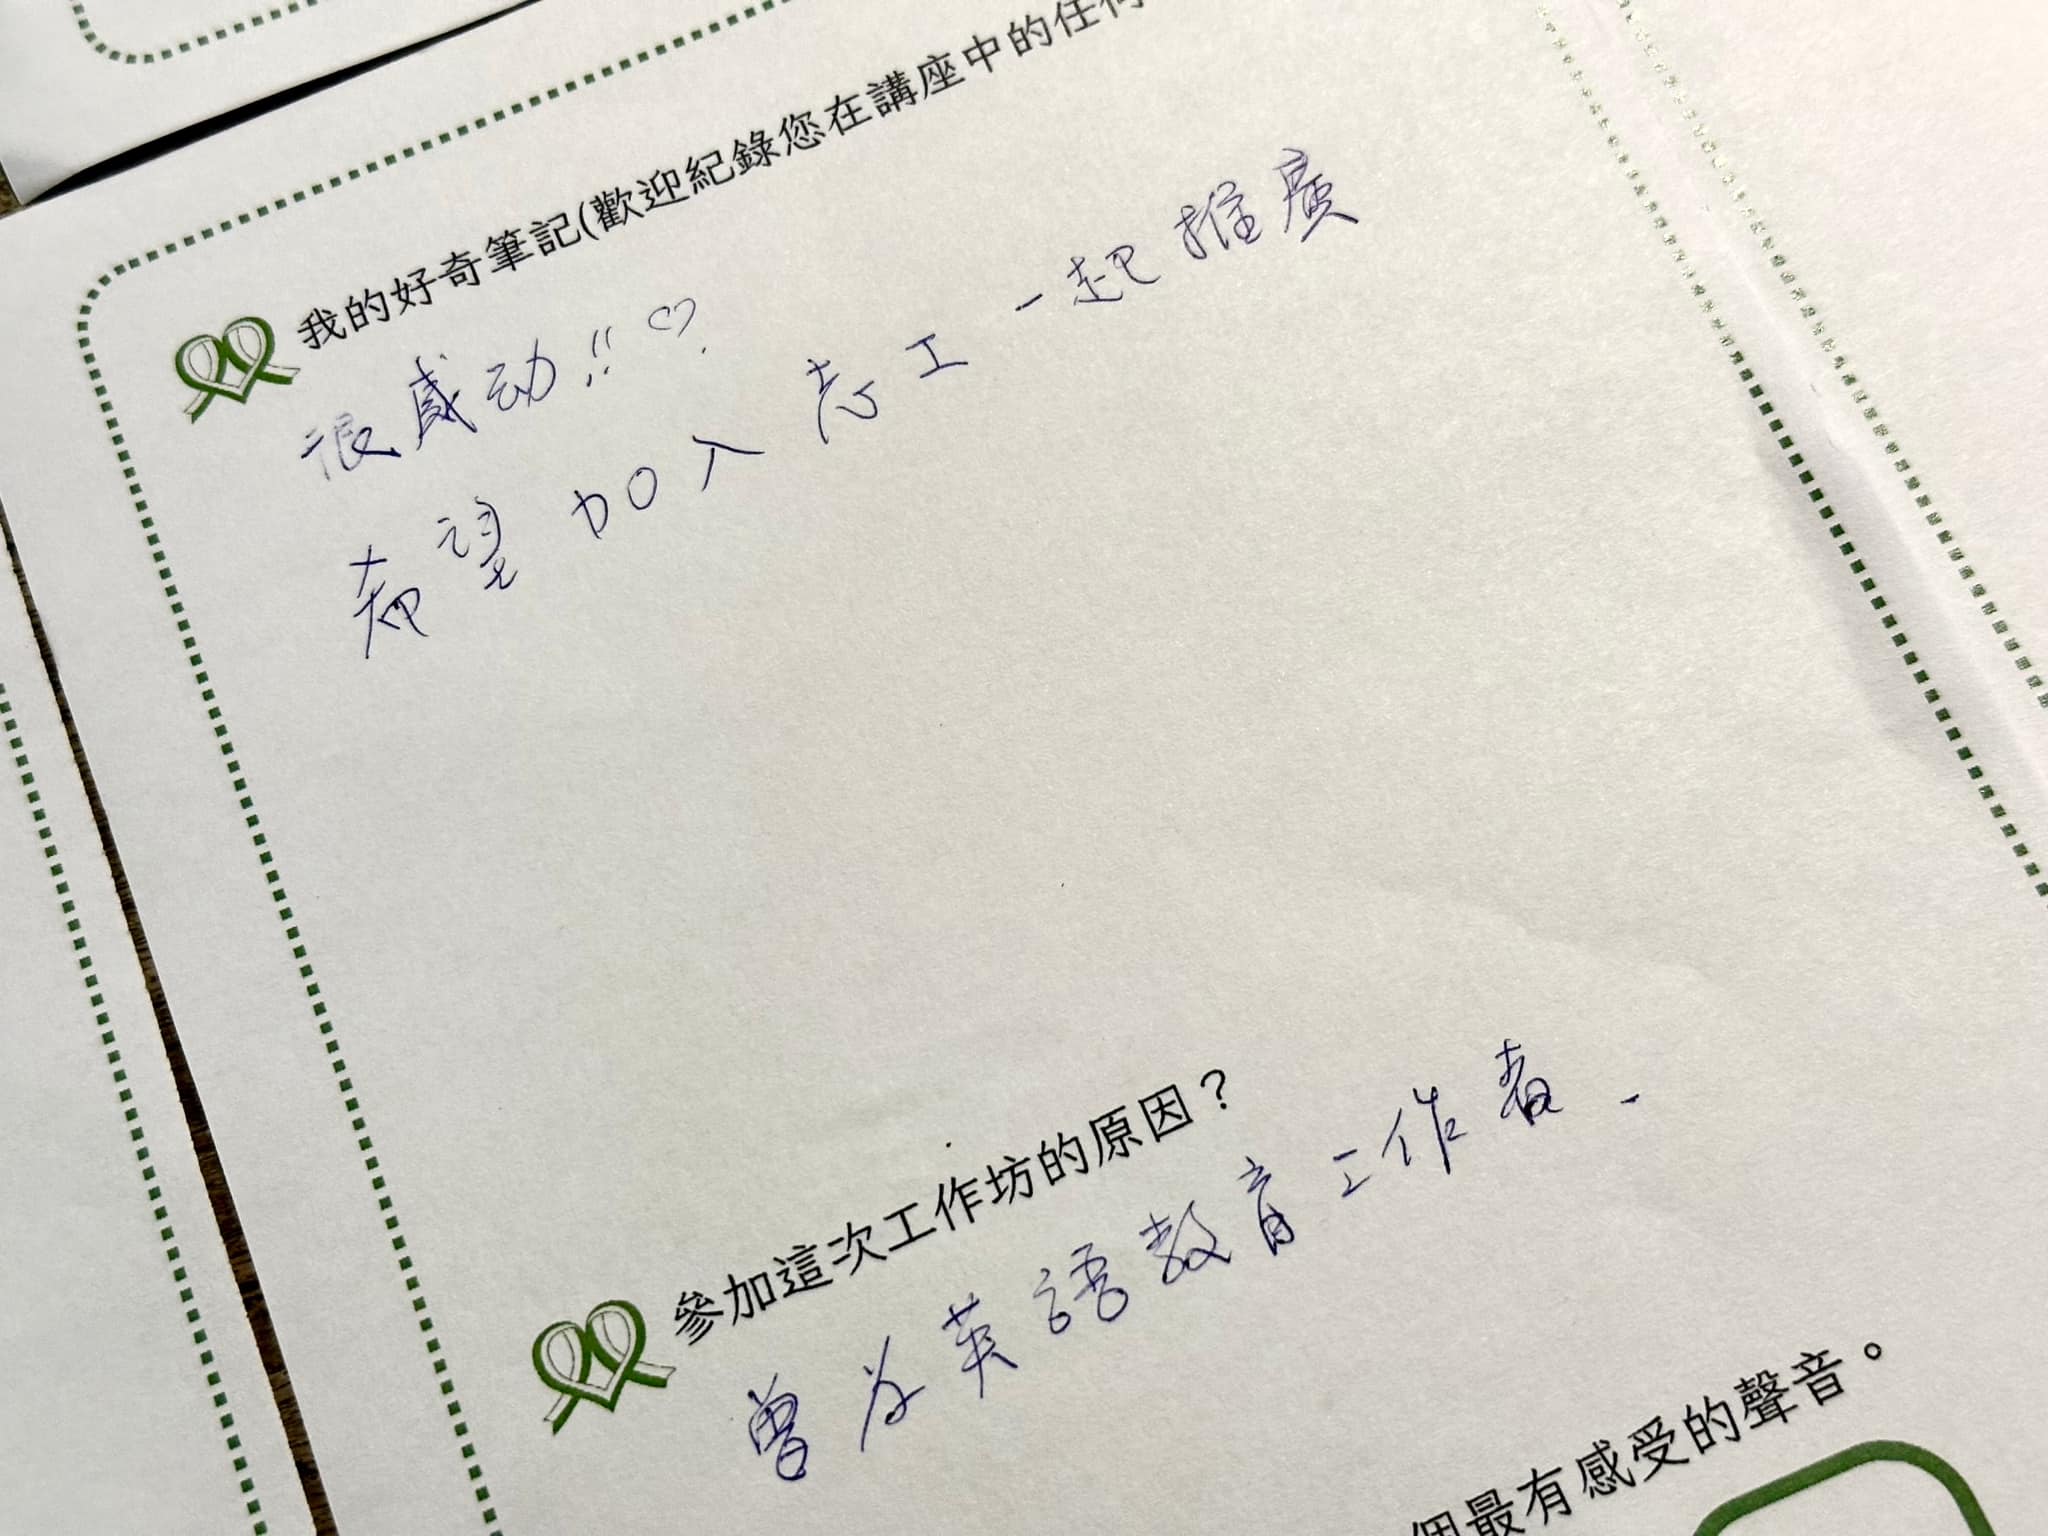 我的好奇筆記(歡迎紀錄您在講座中的任何
很感动!! ♡
希望加入志工一起推廣
參加這次工作坊的原因？
曾为英語教育工作者.
個最有感受的聲音。